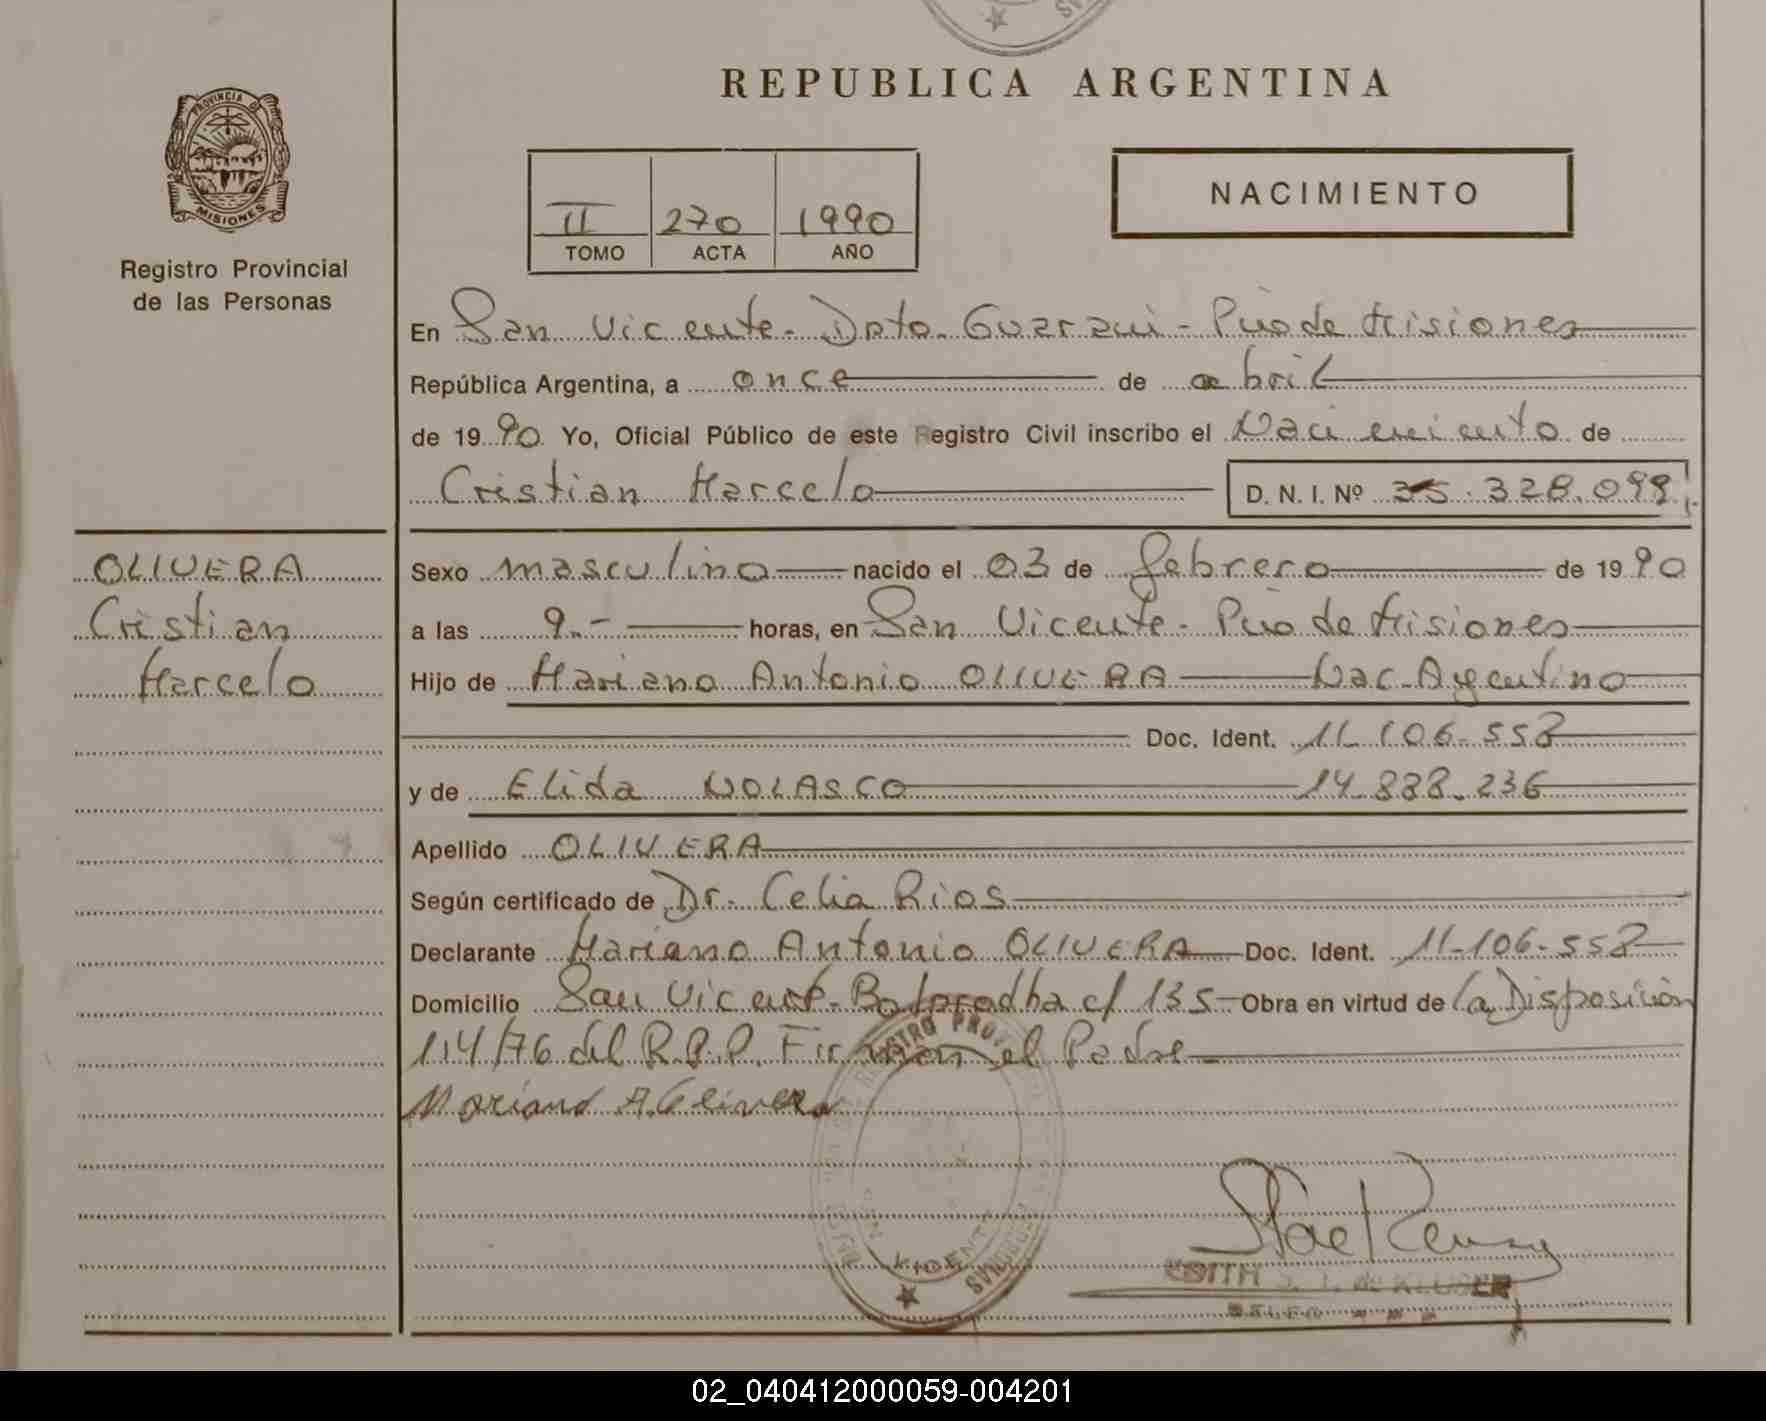 REPUBLICA ARGENTINA
PROVINCIA DE
MISIONES
Registro Provincial
de las Personas
II 270 1990
TOMO ACTA AÑO
NACIMIENTO
En San Vicente - Dpto. Guarani - Pcia de Misiones
República Argentina, a once de abril
de 1990 Yo, Oficial Público de este Registro Civil inscribo el Nacimiento de
Cristian Marcelo D. N. I. Nº 35.328.099
OLIVERA
Cristian
Marcelo
Sexo masculino nacido el 03 de febrero de 1990
a las 9.- horas, en San Vicente - Pcia de Misiones
Hijo de Mariano Antonio OLIVERA Nac. Argentino
Doc. Ident. 11.106.558
y de Elida NOLASCO 14.838.236
Apellido OLIVERA
Según certificado de Dr. Celia Rios
Declarante Mariano Antonio OLIVERA Doc. Ident. 11.106.558
Domicilio San Vicente - c/ 135 Obra en virtud de la Disposición
114/76 del R.P.P. Firman el Padre
Mariano A. Olivera
REGISTRO PROV
PERSONAS
EDITH
02_040412000059-004201